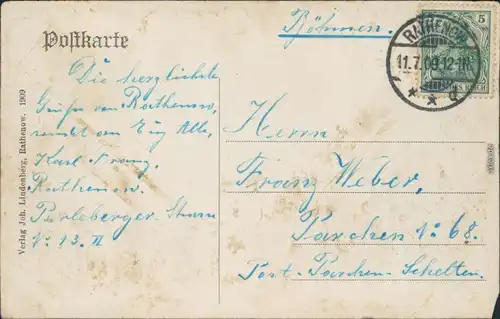 Postkarte
Böhmen.
RATHENOW
11.7.09.12-1N.
* * d
5
Die herzlichste
Grüße von Rathenow,
sendet an Euch Alle,
Karl Franz,
Rathenow.
Perleberger-Strasse
No. 13. II
Herrn
Franz Weber,
Parchen No 68.
Post-Parchen-Schelten.
Verlag Joh. Lindenberg, Rathenow. 1909